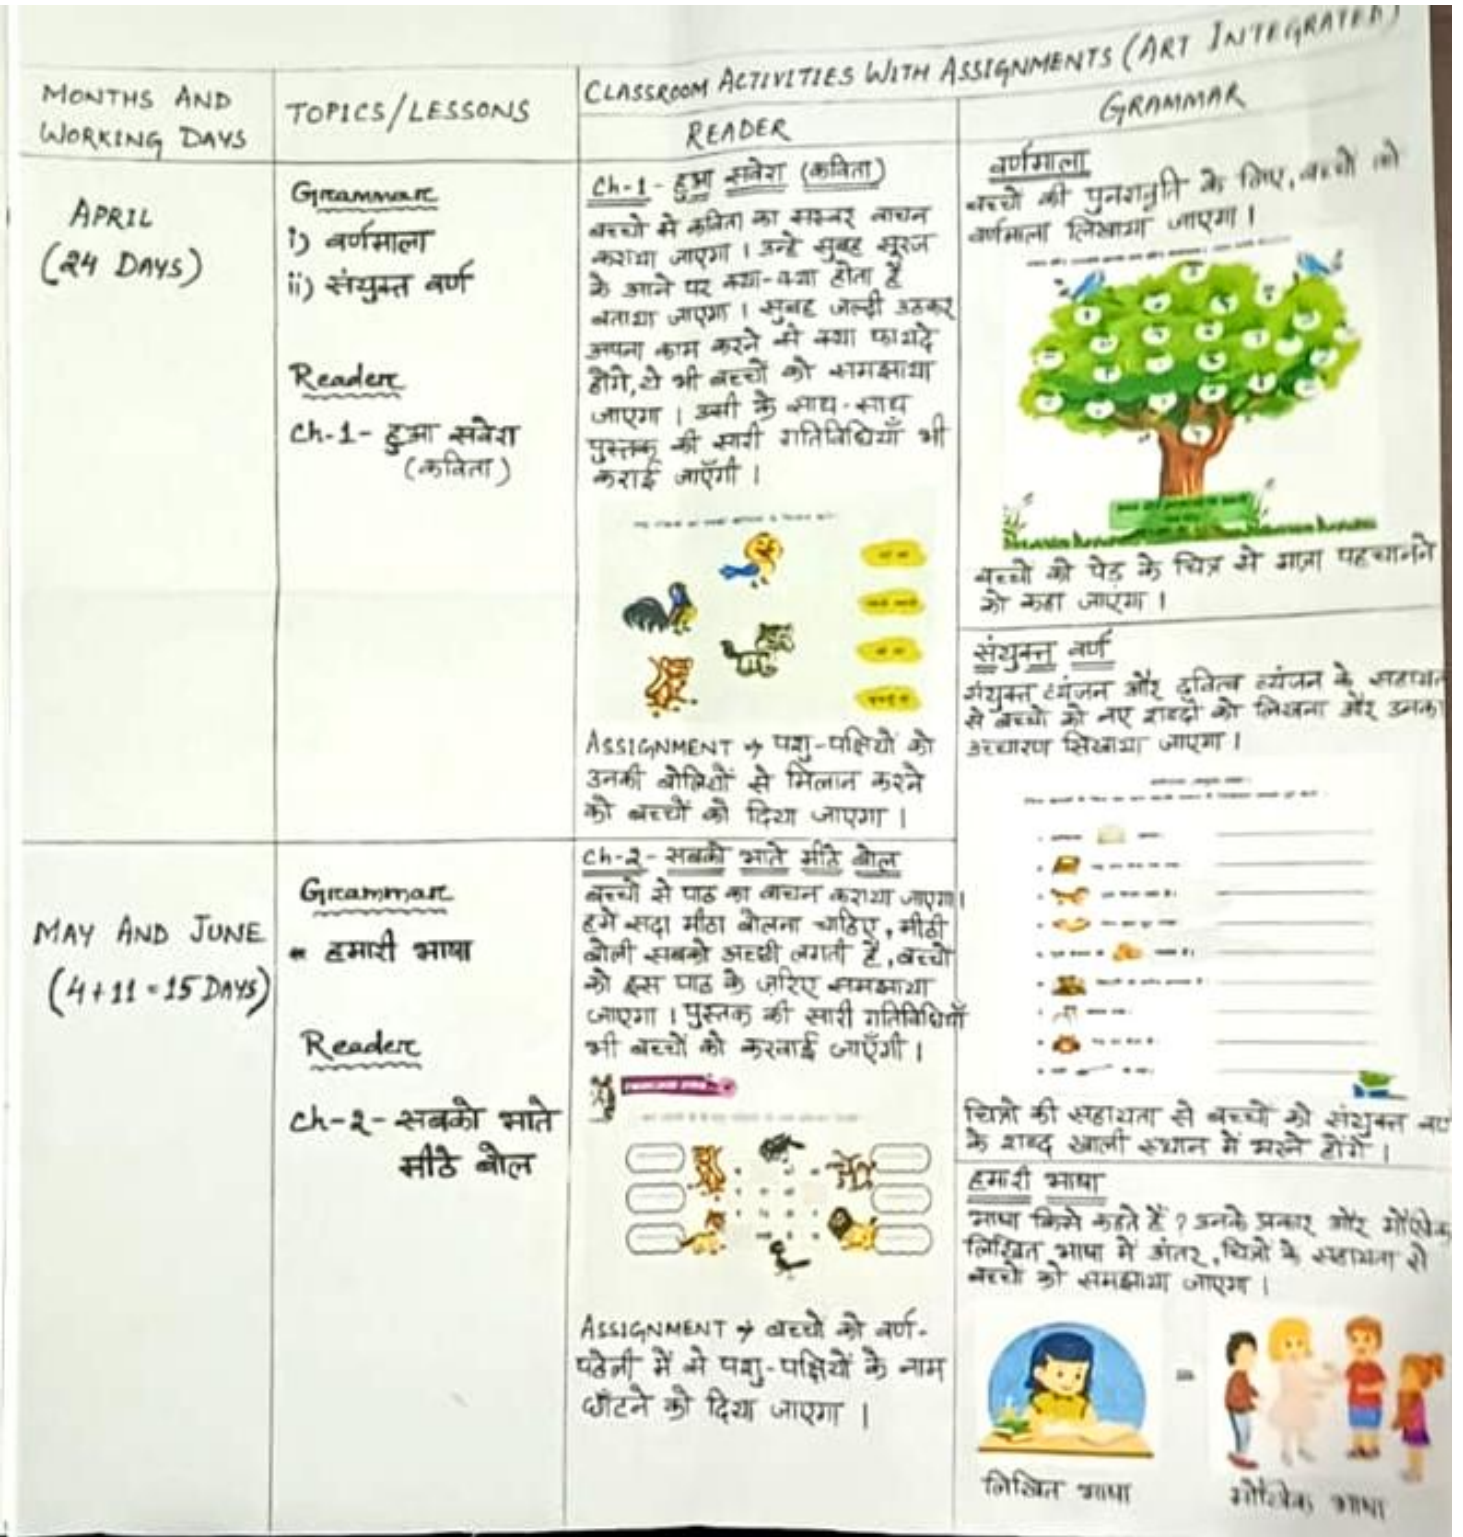 CLASSROOM ACTIVITIES WITH ASSIGNMENTS (ART INTEGRATED)
MONTHS AND
WORKING DAYS
TOPICS/LESSONS
READER
GRAMMAR
APRIL
(24 DAYS)
Grammar
i) वर्णमाला
ii) संयुक्त वर्ण
Reader
Ch-1- हुआ सवेरा
(कविता)
Ch-1- हुआ सवेरा (कविता)
बच्चो से कविता का सस्वर वाचन
कराया जाएगा । उन्हे सुबह सूरज
के आने पर क्या-क्या होता है
बताया जाएगा । सुबह जल्दी उठकर
अपना काम करने से क्या फायदे
होंगे, ये भी बच्चों को समझाया
जाएगा । उसी के साथ-साथ
पुस्तक की सारी गतिविधियाँ भी
कराई जाएँगी ।
ASSIGNMENT → पशु-पक्षियों को
उनकी बोलियों से मिलान करने
को बच्चों को दिया जाएगा ।
वर्णमाला
बच्चो की पुनरावृति के लिए, बच्चों को
वर्णमाला लिखाया जाएगा ।
बच्चो को पेड़ के चित्र से मात्रा पहचानने
को कहा जाएगा ।
संयुक्त वर्ण
संयुक्त व्यंजन और द्वित्व व्यंजन के सहायता
से बच्चो को नए शब्दो को लिखना और उनका
उच्चारण सिखाया जाएगा ।
चित्रो की सहायता से बच्चो को संयुक्त वर्ण
के शब्द खाली स्थान में भरने होंगे ।
MAY AND JUNE
(4+11=15 DAYS)
Grammar
हमारी भाषा
Reader
Ch-2- सबको भाते
मीठे बोल
Ch-2- सबको भाते मीठे बोल
बच्चो से पाठ का वाचन कराया जाएगा।
हमे सदा मीठा बोलना चाहिए, मीठी
बोली सबको अच्छी लगती है, बच्चो
को इस पाठ के जरिए समझाया
जाएगा । पुस्तक की सारी गतिविधियाँ
भी बच्चों को करवाई जाएँगी ।
ASSIGNMENT → बच्चो को वर्ण-
पहेली में से पशु-पक्षियों के नाम
छाँटने को दिया जाएगा ।
हमारी भाषा
भाषा किसे कहते हैं ? उनके प्रकार और मौखिक
लिखित भाषा में अंतर, चित्रो के सहायता से
बच्चो को समझाया जाएगा ।
=
लिखित भाषा
मौखिक भाषा